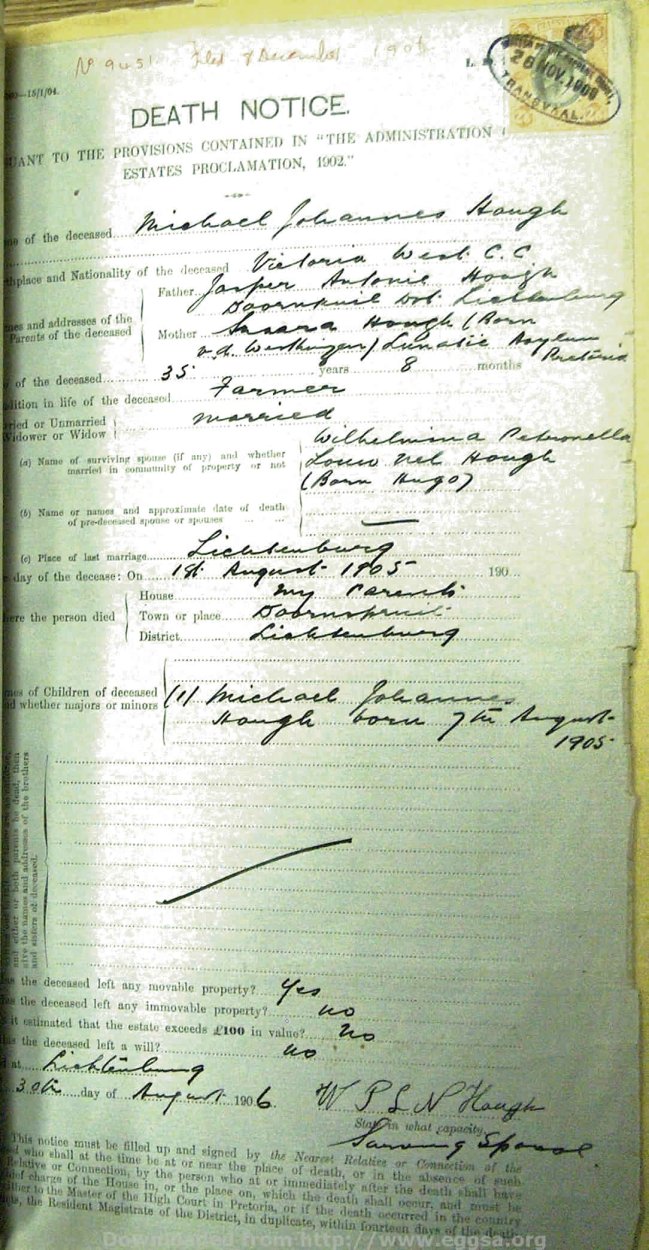 No 9451 Filed 7 December 1906
—15/1/04.
28 NOV 1906
TRANSVAAL.
DEATH NOTICE.
UANT TO THE PROVISIONS CONTAINED IN "THE ADMINISTRATION
ESTATES PROCLAMATION, 1902."
of the deceased Michael Johannes Hough
thplace and Nationality of the deceased Victoria West C.C.
Names and addresses of the Parents of the deceased
Father Jasper Antonie Hough
Lichtenburg
Mother Susara Hough (Born
v.d. ) Lunatic Asylum
Pretoria
of the deceased 35 years 8 months
dition in life of the deceased Farmer
rried or Unmarried
Widower or Widow
married
(a) Name of surviving spouse (if any) and whether
married in community of property or not
Wilhelmina Petronella
Louw Nel Hough
(Born Hugo)
(b) Name or names and approximate date of death
of pre-deceased spouse or spouses —
(c) Place of last marriage Lichtenburg
day of the decease: On 1st August 1905 190
ere the person died
House my Parents
Town or place Doornspruit
District Lichtenburg
mes of Children of deceased
d whether majors or minors
(1) Michael Johannes
Hough born 7th August
1905
and either or both parents be dead, then
give the names and addresses of the brothers
and sisters of deceased.
as the deceased left any movable property? Yes
as the deceased left any immovable property? no
s it estimated that the estate exceeds £100 in value? no
as the deceased left a will? no
d at Lichtenburg
30th day of August 1906
W P L N Hough
State in what capacity
Surviving Spouse
This notice must be filled up and signed by the Nearest Relative or Connection of the
ed who shall at the time be at or near the place of death, or in the absence of such
Relative or Connection, by the person who at or immediately after the death shall have
ief charge of the House in, or the place on, which the death shall occur, and must be
ther to the Master of the High Court in Pretoria, or if the death occurred in the country
cts, the Resident Magistrate of the District, in duplicate, within fourteen days of the death
Downloaded from http://www.eggsa.org